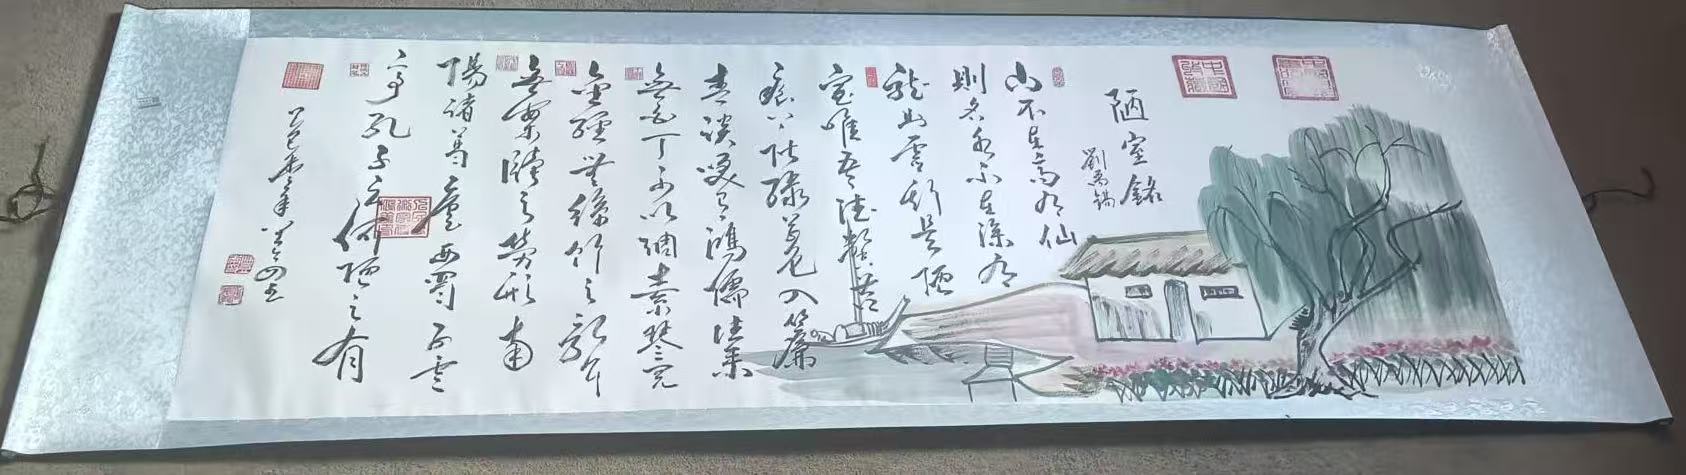 陋室銘
劉禹錫
山不在高有仙
則名水不在深有
龍則靈斯是陋
室唯吾德馨苔
痕上阶绿草色入簾
青談笑有鴻儒往來
無白丁可以調素琴閱
金經無絲竹之亂耳
無案牘之勞形南
陽諸葛廬西蜀子雲
亭孔子云何陋之有